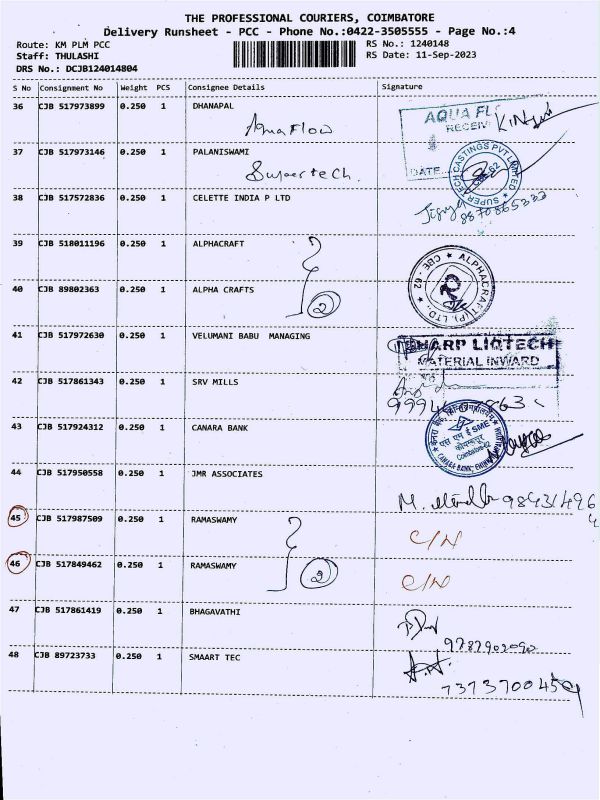 THE PROFESSIONAL COURIERS, COIMBATORE
Delivery Runsheet - PCC - Phone No.:0422-3505555 - Page No.:4
Route: KM PLM PCC RS No.: 1240148
Staff: THULASHI RS Date: 11-Sep-2023
DRS No.: DCJB124014804
S No Consignment No Weight PCS Consignee Details Signature
36 CJB 517973899 0.250 1 DHANAPAL
Aquaflow
AQUA FL
RECEIV
37 CJB 517973146 0.250 1 PALANISWAMI
Supertech.
DATE
SUPER TECH CASTINGS PVT LIMITED
38 CJB 517572836 0.250 1 CELETTE INDIA P LTD
8870865332
39 CJB 518011196 0.250 1 ALPHACRAFT
ALPHACRAFT (P) LTD., CBE - 62
40 CJB 89802363 0.250 1 ALPHA CRAFTS
2
41 CJB 517972630 0.250 1 VELUMANI BABU MANAGING
HARP LIQTECH
MATERIAL INWARD
42 CJB 517861343 0.250 1 SRV MILLS
43 CJB 517924312 0.250 1 CANARA BANK
SME
CANARA BANK
44 CJB 517950558 1 0.250 JMR ASSOCIATES
M.
45 CJB 517987509 0.250 1 RAMASWAMY
C/N
46 CJB 517849462 0.250 1 RAMASWAMY
2
C/N
47 CJB 517861419 0.250 1 BHAGAVATHI
9787902090
48 CJB 89723733 0.250 1 SMAART TEC
7373700459